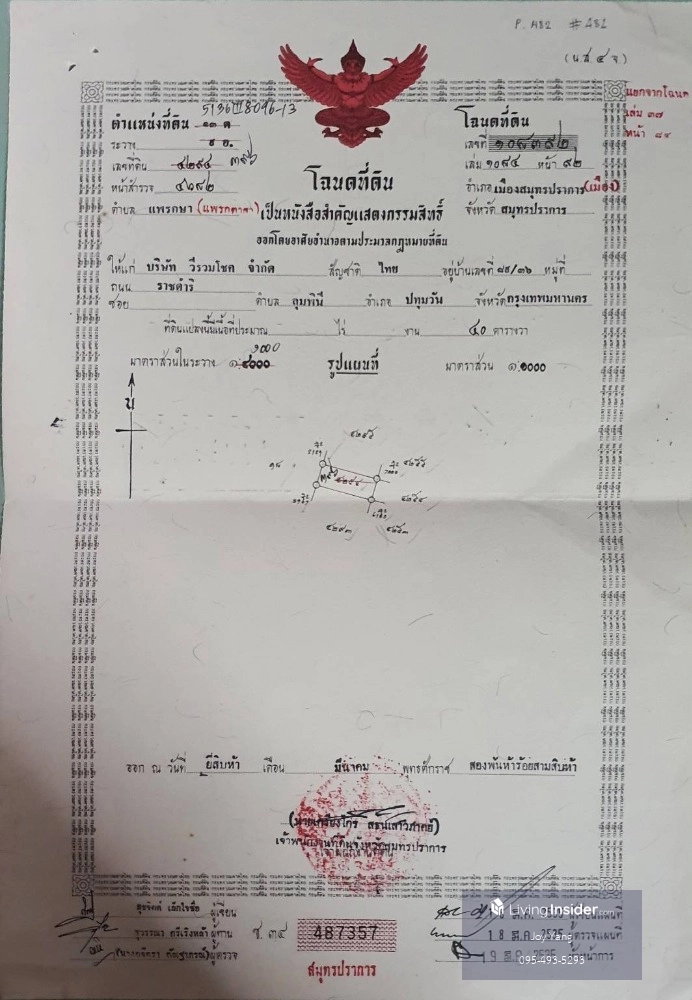 P. 482 #482
(น.ส.๔ จ.)
แยกจากโฉนด
เล่ม ๓๗
หน้า ๘๔
5136 III 8096-13
ตำแหน่งที่ดิน
ระวาง
เลขที่ดิน ๔๒๙๔
หน้าสำรวจ
ตำบล แพรกษา
โฉนดที่ดิน
เลขที่ ๑๐๘๓๙๒
เล่ม ๑๐๘๔ หน้า ๙๒
อำเภอ เมืองสมุทรปราการ (เมือง)
จังหวัด สมุทรปราการ
โฉนดที่ดิน
เป็นหนังสือสำคัญแสดงกรรมสิทธิ์
ออกโดยอาศัยอำนาจตามประมวลกฎหมายที่ดิน
ให้แก่ บริษัท วีรวมโชค จำกัด สัญชาติ ไทย อยู่บ้านเลขที่ ๘๙/๓๖ หมู่ที่
ถนน ราชดำริ
ซอย ตำบล ลุมพินี อำเภอ ปทุมวัน จังหวัด กรุงเทพมหานคร
ที่ดินแปลงนี้มีเนื้อที่ประมาณ ไร่ งาน ๔๐ ตารางวา
๑๐๐๐
มาตราส่วนในระวาง ๑:๔๐๐๐ รูปแผนที่ มาตราส่วน ๑:๑๐๐๐
น
๔๒๙๕
๔๒๕๕
๔๒๙๔
๔๒๕๔
๔๒๙๓ ๔๒๕๓
ออก ณ วันที่ ยี่สิบห้า เดือน มีนาคม พุทธศักราช สองพันห้าร้อยสามสิบห้า
เจ้าพนักงานที่ดินจังหวัดสมุทรปราการ
ผู้เขียน
ผู้ทาน
ผู้ตรวจ
ช. ๓๔ 487357
สมุทรปราการ
LivingInsider.com
Joy Yang
095-493-5293